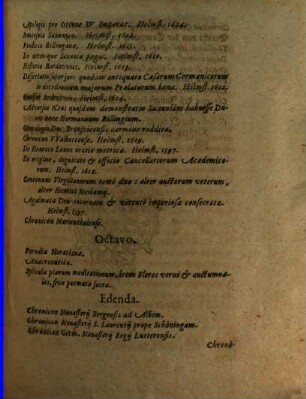 Apologia pro Ottone IV Imperat. Helmst. 1624.
Itinicia Saxonum. Helmst.
Vindex Billingana. Helmst. 1615.
De utroque Saxoniæ pago. Helmst. 1610.
Historia Bardevici. Helmst. 1613.
Dissertatio super jure quodam antiquato Cæsarum Germanicorum
in decedentium majorum Prælatorum bona. Helmst. 1612.
Helmst. 1614.
Adversus Icti quosdam demonstratio Saxoniam habuisse Du-
cem hunc Hermannum Billingium.
Genealogia Duc. Brunsvicensis carmine reddita.
Chronicon Walbeccense. Helmst. 1619.
De Henrico Leone oratio metrica. Helmst. 1597.
De origine, dignitate & officio Cancellariorum Academico-
rum. Helmst. 1612.
Centonum Virgilianorum tomi duo: alter auctorum veterum,
alter Henrici Meibomij.
Agalmata Divis virtuti imperiosæ consecrata.
Helmst. 1597.
Chronicon Marienthalense.
Octavo.
Parodiæ Horatianæ.
Anacreontica.
Spicula piarum meditationum, item Flores verni & auctumna-
les, sive poemata sacra.
Edenda.
Chronicon Monasterij Bergensis ad Albim.
Chronicon Monasterij S. Laurentij prope Schöningam.
Chronicon Germ. Monasterij Regij Lutterensis.
Chroni-